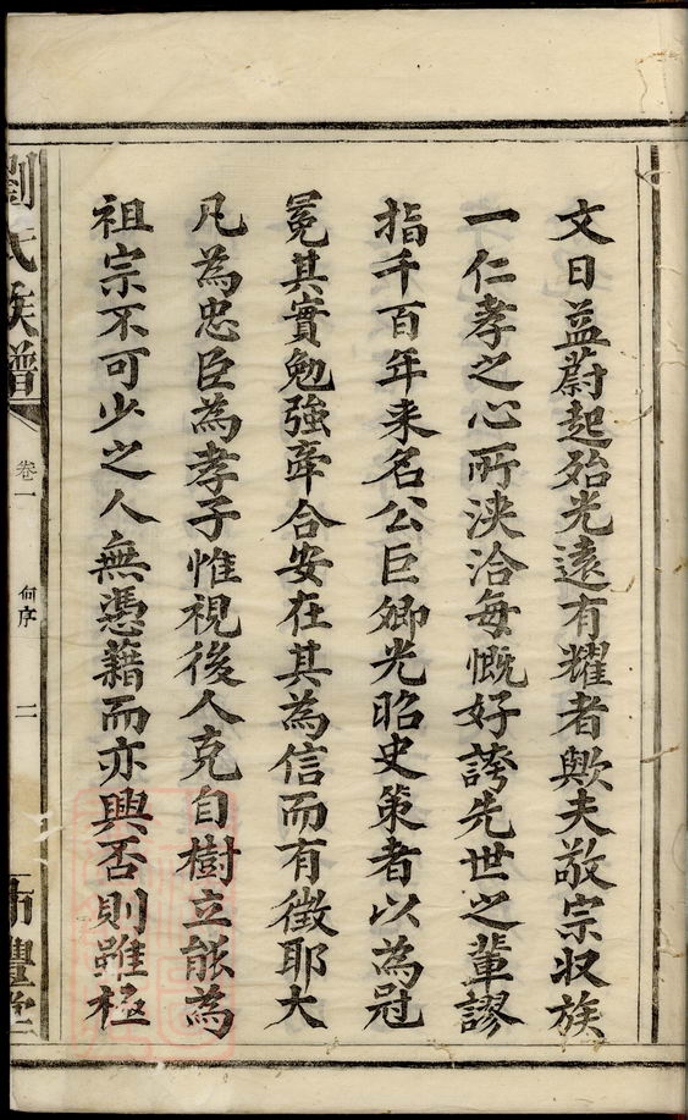 文日益蔚起殆光遠有耀者歟夫敬宗収族
一仁孝之心所浹洽每慨好誇先世之輩謬
指千百年来名公巨卿光昭史策者以為冠
冕其實勉強牽合安在其為信而有徵耶大
凡為忠臣為孝子惟視後人克自樹立能為
祖宗不可少之人無憑藉而亦興否則雖極
劉氏族譜
卷一
序
二
豐堂